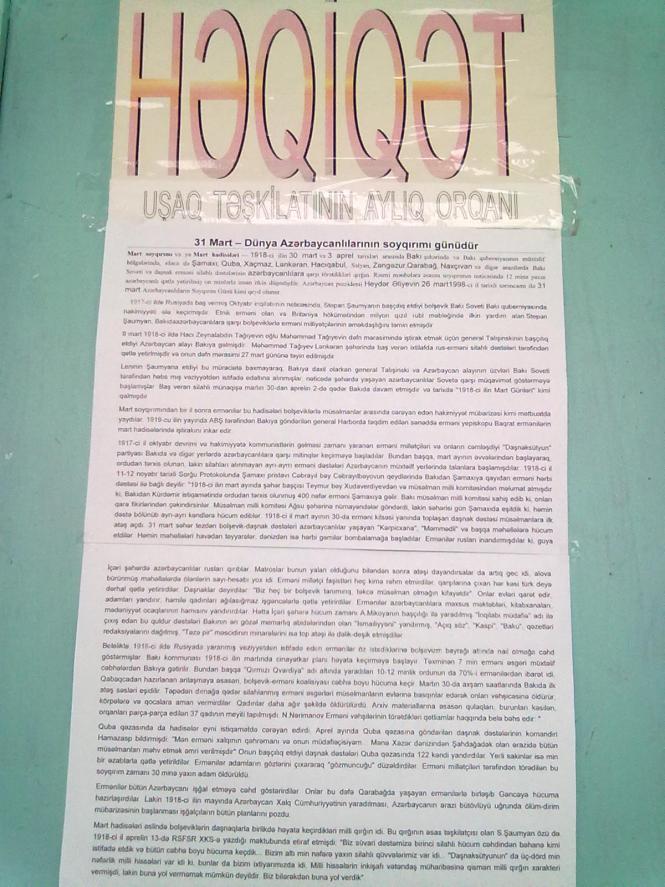 HƏQİQƏT
UŞAQ TƏŞKİLATININ AYLIQ ORQANI
31 Mart – Dünya Azərbaycanlılarının soyqırımı günüdür
Mart soyqırımı və ya Mart hadisələri — 1918-ci ilin 30 mart və 3 aprel tarixləri arasında Bakı şəhərində və Bakı quberniyasının müxtəlif
bölgələrində, eləcə də Şamaxı, Quba, Xaçmaz, Lənkəran, Hacıqabul, Salyan, Zəngəzur, Qarabağ, Naxçıvan və digər ərazilərdə Bakı
Soveti və daşnak erməni silahlı dəstələrinin azərbaycanlılara qarşı törətdikləri qırğın. Rəsmi mənbələrə əsasən soyqırımın nəticəsində 12 minə yaxın
azərbaycanlı qətlə yetirilmiş on minlərlə insan itkin düşmüşdür. Azərbaycan prezidenti Heydər Əliyevin 26 mart1998-ci il tarixli sərəncamı ilə 31
mart Azərbaycanlıların Soyqırımı Günü kimi qeyd olunur.
1917-ci ildə Rusiyada baş vermiş Oktyabr inqilabının nəticəsində, Stepan Şaumyanın başçılıq etdiyi bolşevik Bakı Soveti Bakı quberniyasında
hakimiyyəti ələ keçirmişdir. Etnik erməni olan və Britaniya hökümətindən milyon qızıl rubl məbləğində ilkin yardım alan Stepan
Şaumyan, Bakıdaazərbaycanlılara qarşı bolşeviklərlə erməni millyətçilərinin əməkdaşlığını təmin etmişdir
9 mart 1918-ci ildə Hacı Zeynalabdin Tağıyevin oğlu Məhəmməd Tağıyevin dəfn mərasimində iştirak etmək üçün general Talışinskinin başçılıq
etdiyi Azərbaycan alayı Bakıya gəlmişdir. Məhəmməd Tağıyev Lənkəran şəhərində baş verən ixtilafda rus-erməni silahlı dəstələri tərəfindən
qətlə yetirilmişdir və onun dəfn mərasimi 27 mart gününə təyin edilmişdir
Leninin Şaumyana etdiyi bu müraciətə baxmayaraq, Bakıya daxil olarkən general Talışinski və Azərbaycan alayının üzvləri Bakı Soveti
tərəfindən həbs mış vəziyyətdən istifadə edərək əlinə alınmışlar, nəticədə şəhərdə yaşayan azərbaycanlılar Sovetə qarşı müqavimət göstərməyə
başlamışlar. Baş verən silahlı münaqişə martın 30-dan aprelin 2-də qədər Bakıda davam etmişdir və tarixdə "1918-ci ilin Mart Günləri" kimi
qalmışdır
Mart soyqırımından bir il sonra ermənilər bu hadisələri bolşeviklərlə müsəlmanlar arasında cərəyan edən hakimiyyət mübarizəsi kimi mətbuatda
yayıtılar. 1919-cu ilin yayında ABŞ tərəfindən Bakıya göndərilən general Harborda təqdim edilən sənəddə erməni yepiskopu Baqrat ermənilərin
mart hadisələrində iştirakını inkar edir.
1917-ci il oktyabr devrimi və hakimiyyətə kommunistlərin gəlməsi zamanı yaranan erməni millətçiləri və onların cəmləşdiyi "Daşnaksütyun"
partiyası Bakıda və digər yerlərdə azərbaycanlılara qarşı mitinqlər keçirməyə başladılar. Bundan başqa, mart ayının əvvələrindən başlayaraq,
ordudan tərxis olunan, lakin silahları alınmayan ayrı-ayrı erməni dəstələri Azərbaycanın müxtəlif yerlərində talanlara başlamışdılar. 1918-ci il
11-12 noyabr tarixli Sorğu Protokolunda Şamaxı pristavı Cəbrayıl bəy Cəbrayılbəyovun qeydlərində Bakıdan Şamaxıya qayıdan erməni hərbi
dəstəsi ilə bağlı deyilir: "1918-ci ilin mart ayında şəhər başçısı Teymur bəy Xudaverdiyevdən və müsəlman milli komitəsindən məlumat almışdır
ki, Bakıdan Kürdəmir istiqamətində ordudan tərxis olunmuş 400 nəfər erməni Şamaxıya gəlir. Bakı müsəlman milli komitəsi xahiş edib ki, onları
qara fikirlərindən çəkindirsinlər. Müsəlman milli Komitəsi Ağsu şəhərinə nümayəndələr göndərdi, lakin səhərisi gün Şamaxıda eşitdik ki, həmin
dəstə bölünüb ayrı-ayrı kəndlərə hücum ediblər. 1918-ci il mart ayının 30-da erməni kilsəsi yanında toplaşan daşnak dəstəsi müsəlmanlara ilk
atəş açdı. 31 mart səhər tezdən bolşevik-daşnak dəstələri azərbaycanlılar yaşayan "Kərpicxana", "Məmmədli" və başqa məhəllələrə hücum
etdilər. Həmin məhəllələri havadan təyyarələr, dənizdən isə hərbi gəmilər bombalamağa başladılar. Ermənilər rusları inandırmışdılar ki, guya
İçəri şəhərdə azərbaycanlılar rusları qırıblar. Matroslar bunun yalan olduğunu biləndən sonra atəşi dayandırsalar da artıq gec idi, alova
bürünmüş məhəllələrdə ölənlərin sayı-hesabı yox idi. Erməni millətçi faşistləri heç kimə rəhm etmirdilər, qarşılarına çıxan hər kəsi türk deyə
dərhal qətlə yetirirdilər. Daşnaklar deyirdilər: "Biz heç bir bolşevik tanımırıq, təkcə müsəlman olmağın kifayətdir". Onlar evləri qarət edir,
adamları yandırır, hamilə qadınları ağlasığmaz işgəncələrlə qətlə yetirirdilər. Ermənilər azərbaycanlılara məxsus məktəbləri, kitabxanaları,
mədəniyyət ocaqlarının hamısını yandırırdılar. Hətta İçəri şəhərə hücum zamanı A.Mikoyanın başçılığı ilə yaradılmış "İnqilabı müdafiə" adı ilə
çıxış edən bu quldur dəstələri Bakının ən gözəl memarlıq abidələrindən olan "İsmailiyyəni" yandırmış, "Açıq söz", "Kaspi", "Baku", qəzetləri
redaksiyalarını dağılmış, "Təzə pir" məscidinin minarələrini isə top atəşi ilə dəlik-deşik etmişdilər
Beləliklə 1918-ci ildə Rusiyada yaranmış vəziyyətdən istifadə edən ermənilər öz istədiklərinə bolşevizm bayrağı altında nail olmağa cəhd
göstərmişlər. Bakı kommunası 1918-ci ilin martında cinayətkar planı həyata keçirməyə başlayır. Təxminən 7 min erməni əsgəri müxtəlif
cəbhələrdən Bakıya gətirilir. Bundan başqa "Qırmızı Qvardiya" adı altında yaradılan 10-12 minlik ordunun da 70%-i ermənilərdən ibarət idi.
Qabaqcadan hazırlanan anlaşmaya əsasən, bolşevik-erməni koalisiyası cəbhə boyu hücuma keçir. Martın 30-da axşam saatlarında Bakıda ilk
atəş səsləri eşidilir. Təpədən dırnağa qədər silahlanmış erməni əsgərləri müsəlmanların evlərinə basqınlar edərək onları vəhşicəsinə öldürür,
körpələrə və qocalara aman vermirdilər. Qadınlar daha ağır şəkildə öldürürdülər. Arxiv materiallarına əsasən qulaqları, burunları kəsilən,
orqanları parça-parça edilən 37 qadının meyiti tapılmışdı. N.Nərimanov Erməni vəhşilərinin törətdikləri qətliamlar haqqında belə bəhs edir: "
Quba qəzasında da hadisələr eyni istiqamətdə cərəyan edirdi. Aprel ayında Quba qəzasına göndərilən daşnak dəstələrinin komandiri
Hamazasp bildirmişdi: "Mən erməni xalqının qəhrəmanı və onun müdafiəçisiyəm... Mənə Xəzər dənizindən Şahdağadək olan ərazidə bütün
müsəlmanları məhv etmək əmri verilmişdir" Onun başçılıq etdiyi daşnak dəstələri Quba qəzasında 122 kəndi yandırdılar. Yerli sakinlər isə min
bir əzabla qətlə yetirildilər. Ermənilər adamların gözlərini çıxararaq "gözmuncuğu" düzəldirdilər. Erməni millətçiləri tərəfindən törədilən bu
soyqırım zamanı 30 minə yaxın adam öldürüldü.
Ermənilər bütün Azərbaycanı işğal etməyə cəhd göstərirdilər. Onlar bu dəfə Qarabağda yaşayan ermənilərlə birləşib Gəncəyə hücuma
hazırlaşırdılar. Lakin 1918-ci ilin mayında Azərbaycan Xalq Cümhuriyyətinin yaradılması, Azərbaycanın ərazi bütövlüyü uğrunda ölüm-dirim
mübarizəsinin başlanması işğalçıların bütün planlarını pozdu.
Mart hadisələri əslində bolşeviklərin daşnaqlarla birlikdə həyata keçirdikləri milli qırğın idi. Bu qırğının əsas təşkilatçısı olan S.Şaumyan özü də
1918-ci il aprelin 13-də RSFSR XKS-ə yazdığı məktubunda etiraf etmişdi: "Biz süvari dəstəmizə birinci silahlı hücum cəhdindən bəhanə kimi
istifadə etdik və bütün cəbhə boyu hücuma keçdik... Bizim altı min nəfərə yaxın silahlı qüvvələrimiz var idi... "Daşnaksütyunun" da üç-dörd min
nəfərlik milli hissələri var idi ki, bunlar da bizim ixtiyarımızda idi. Milli hissələrin inkişafı vətəndaş müharibəsinə qismən milli qırğın xarakteri
vermişdi, lakin buna yol verməmək mümkün deyildir. Biz bilərəkdən buna yol verdik".